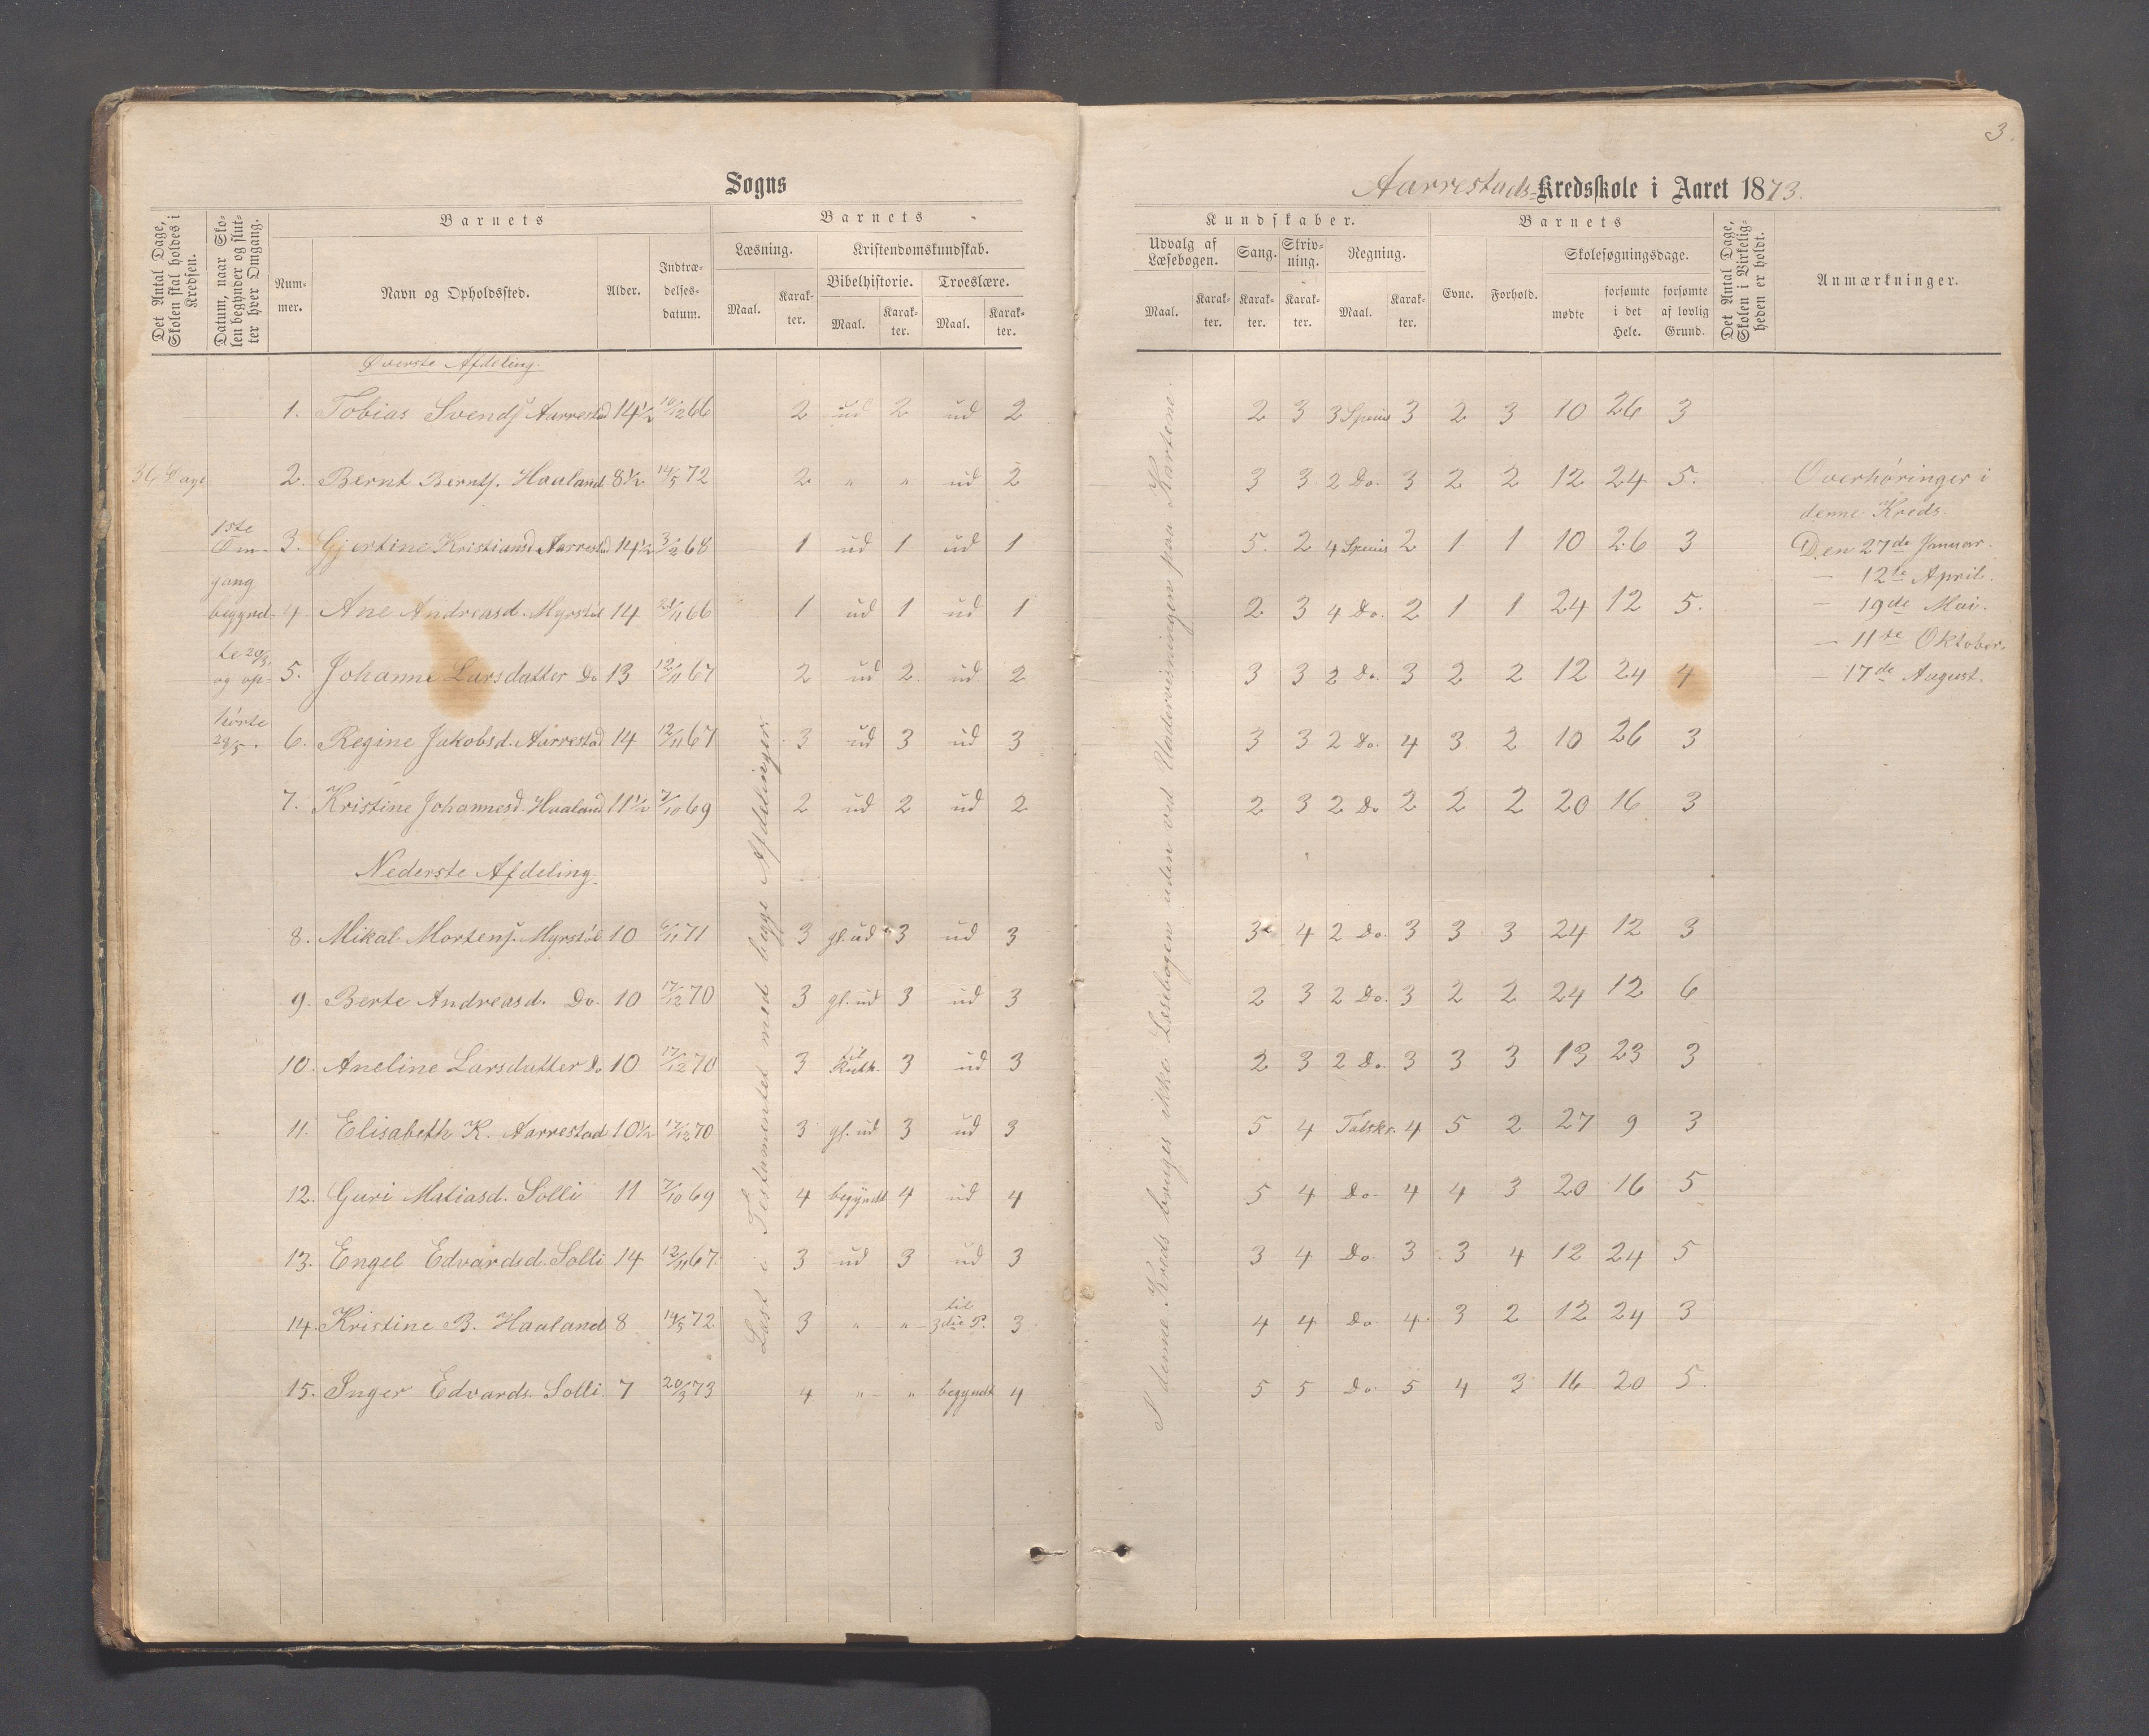 3.
Sogns
Aarrestads Kredsskole i Aaret 1873.
Det Antal Dage, Skolen skal holdes i Kredsen.
Datum, naar Skolen begynder og slutter hver Omgang.
Barnets
Nummer.
Navn og Opholdssted.
Alder.
Indtrædelses-datum.
Barnets
Læsning.
Maal.
Karakter.
Kristendomskundskab.
Bibelhistorie.
Maal.
Karakter.
Troeslære.
Maal.
Karakter.
Kundskaber.
Udvalg af Læsebogen.
Maal.
Karakter.
Sang.
Karakter.
Skrivning.
Karakter.
Regning.
Maal.
Karakter.
Barnets
Evne.
Forhold.
Skolesøgningsdage.
mødte
forsømte i det Hele.
forsømte af lovlig Grund.
Det Antal Dage, Skolen i Virkeligheden er holdt.
Anmærkninger.
Øverste Afdeling.
1. Tobias Svends. Aarrestad 14½ 10/12 66 2 ud 2 ud 2 2 3 3 Species 3 2 3 10 26 3
36 Dage 2. Bernt Bernts. Haaland 8½ 14/5 72 2 " " ud 2 3 3 2 Do. 3 2 2 12 24 5.
3. Gjertine Kristiansd. Aarrestad 14½ 3/12 68 1 ud 1 ud 1 5. 2 4 Species 2 1 1 10 26 3
4. Ane Andreasd. Myrstøl 14 21/11 66 1 ud 1 ud 1 2 3 4 Do. 2 1 1 24 12 5.
5. Johanne Larsdatter Do 13 12/11 67 2 ud 2 ud 2 3 3 2 Do. 3 2 2 12 24 4
6. Regine Jakobsd. Aarrestad 14 12/11 67 3 ud 3 ud 3 3 3 2 Do. 4 3 2 10 26 3
7. Kristine Johannesd. Haaland 11½ 7/10 69 2 ud 2 ud 2 2 3 2 Do 2 2 2 20 16 3
1ste
Om-
gang
begynd-
te 20/3
og op-
hørte
29/5.
Overhøringer i
denne Kreds.
Den 27de Januar.
— 12te April.
— 19de Mai.
— 11te Oktober.
— 17de August.
Nederste Afdeling.
8. Mikal Mortens. Myrstøl 10 6/11 71 3 gl. ud 3 ud 3 3 4 2 Do. 3 3 3 24 12 3
9. Berte Andreasd. Do. 10 17/12 70 3 gl. ud 3 ud 3 2 3 2 Do. 3 2 2 24 12 6
10. Aneline Larsdatter Do 10 17/12 70 3 til Ruth. 3 ud 3 2 3 2 Do. 3 3 3 13 23 3
11. Elisabeth K. Aarrestad 10½ 17/12 70 3 gl. ud 3 ud 3 5 4 Talskr. 4 5 2 27 9 3
12. Guri Matiasd. Solli 11 7/10 69 4 begyndt 4 ud 4 5 4 Do. 4 4 3 20 16 5
13. Engel Edvardsd. Solli 14 12/11 67. 3 ud 3 ud 3 3 4 Do. 3 3 4 12 24 5
14. Kristine B. Haaland 8 14/5 72 3 " " til 3die P. 3 4 4 Do 4 3 2 12 24 3
15. Inger Edvards. Solli. 7 20/3 73 4 " " begyndt 4 5 5 Do 5 4 3 16 20 5.
Læst i Testamentet med begge Afdelinger.
I denne Kreds bruges ikke Læsebogen uden ved Undervisningen paa Karterne.